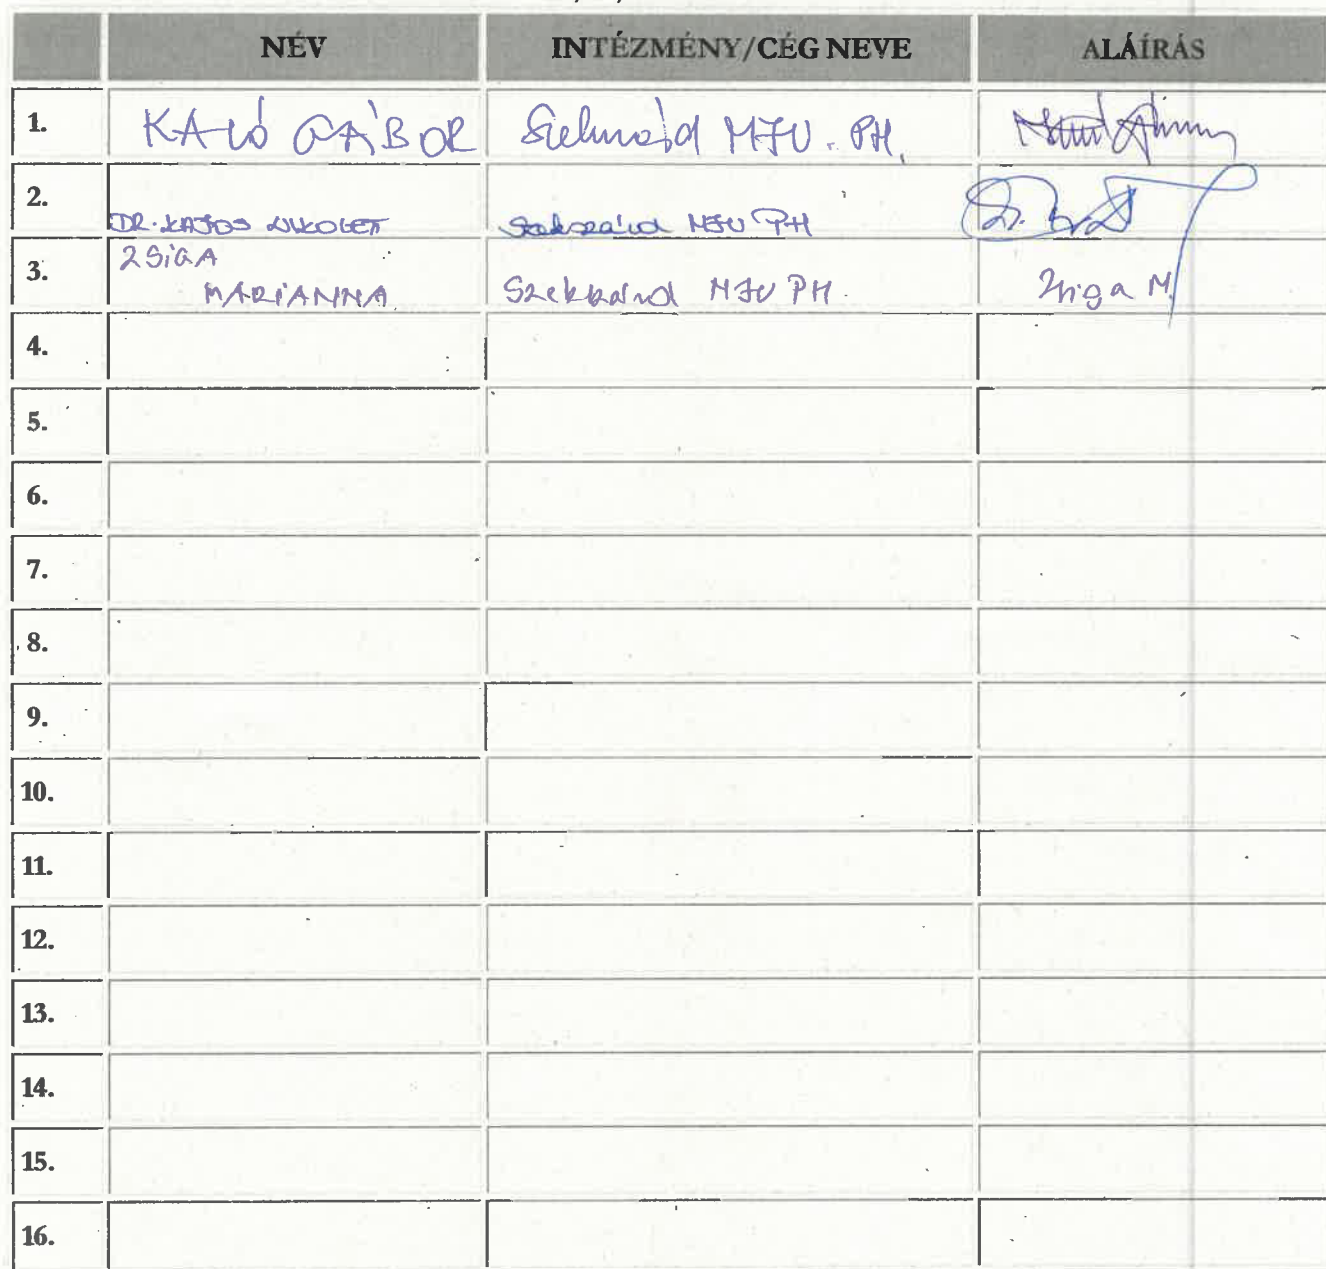 NÉV INTÉZMÉNY/CÉG NEVE ALÁÍRÁS
1. GÁBOR MJV. PH.
2. DR. KAJOS NIKOLET Szekszárd MJV PH
3. ZSIGA
MARIANNA Szekszárd MJV PH. Zsiga M.
4.
5.
6.
7.
8.
9.
10.
11.
12.
13.
14.
15.
16.